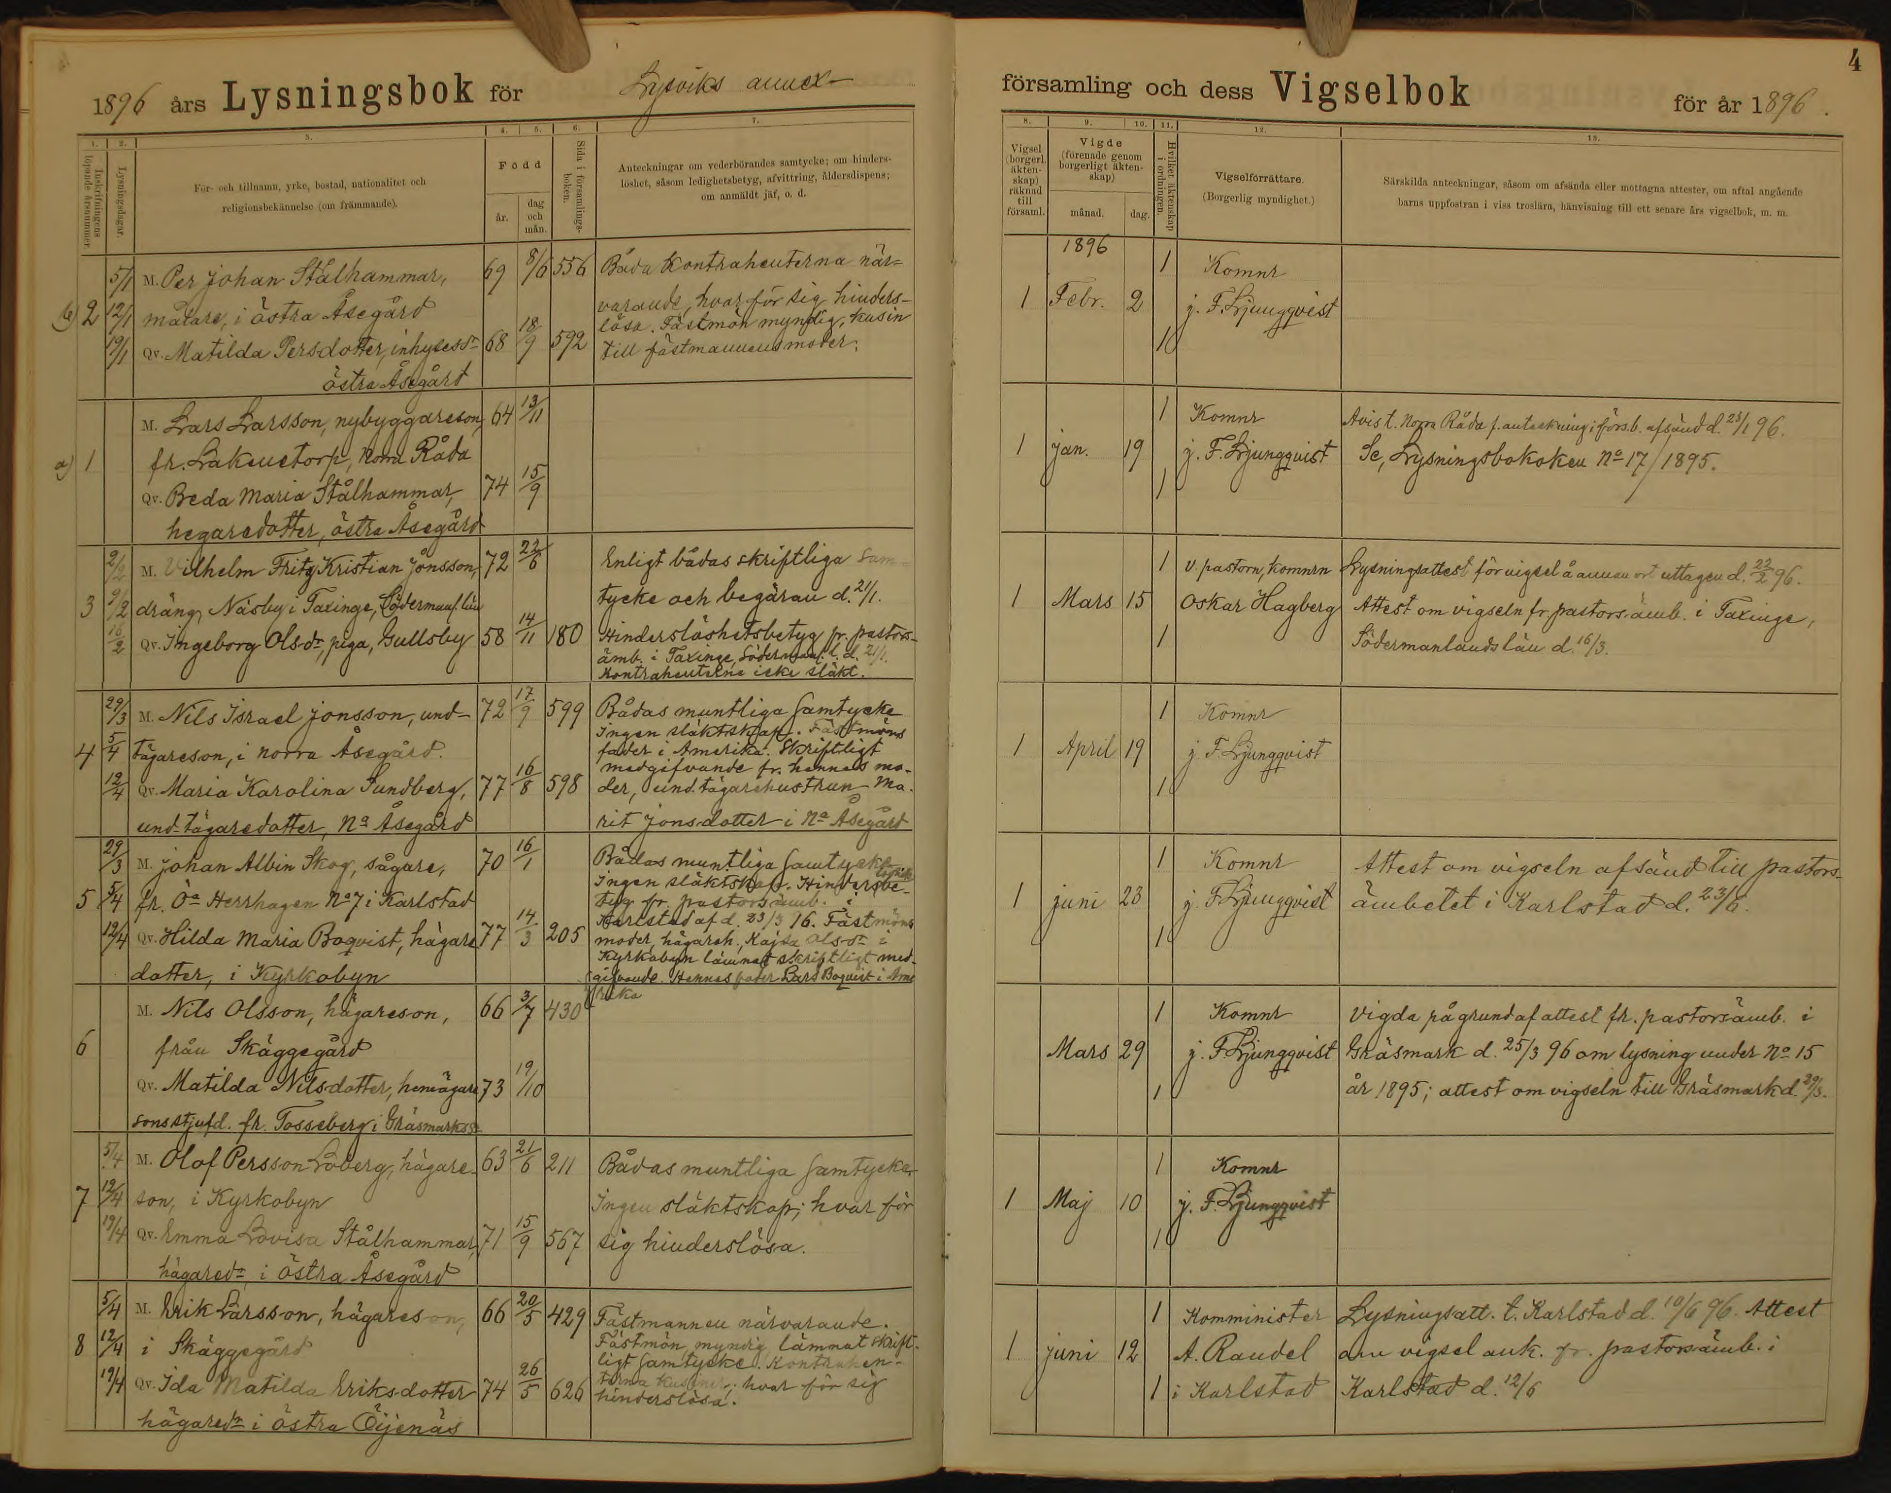 4
1896 års Lysningsbok för Lysviks annex-
församling och dess Vigselbok för år 1896.
1. 2. 3. 4. 5. 6. 7.
Inskrifningens löpande årsnummer.
Lysningsdagar.
För- och tillnamn, yrke, bostad, nationalitet och
religionsbekännelse (om främmande).
Född
år.
dag och mån.
Sida i församlings-boken.
Anteckningar om vederbörandes samtycke; om hinders-
löshet, såsom ledighetsbetyg, afvittring, åldersdispens;
om anmäldt jäf, o. d.
8. 9. 10. 11. 12. 13.
Vigsel (borgerl. äkten-skap) räknad till församl.
Vigde
(förenade genom borgerligt äkten-skap)
månad. dag.
Hvilket äktenskap i ordningen.
Vigselförrättare.
(Borgerlig myndighet.)
Särskilda anteckningar, såsom om afsända eller mottagna attester, om aftal angående
barns uppfostran i viss troslära, hänvisning till ett senare års vigselbok, m. m.
5/1 M. Per Johan Stålhammar, 69 8/6 556 Båda Kontrahenterna när-
b) 2 12/1 målare, i östra Åsegård varande, hvar för sig hinders-
lösa. Fästmön myndig, kusin
19/1 Qv. Matilda Persdotter, inhysesdr 68 18/9 592 till fästmannens moder.
östra Åsegård
1896
1 Komnr
1 Febr. 2 j. F. Ljungqvist
1
M. Lars Larsson, nybyggareson, 64 13/11
a) 1 fr. Lakenetorp, Norra Råda
Qv. Beda Maria Stålhammar, 74 15/9
hegaredotter, östra Åsegård
1 Komnr Avis t. Norra Råda f. anteckning i förs.b. afsänd d. 23/1 96.
1 jan. 19 j. F. Ljungqvist Se, Lysningsbokoken No 17/1895.
1
2/2 M. Vilhelm Fritz Kristian Jönsson, 72 22/6 Enligt bådas skriftliga sam-
3 9/2 dräng, Näsby i Taxinge, Södermanl. län tycke och begäran d. 21/1.
16/2 Qv. Ingeborg Olsdr, piga, Gullsby 58 14/11 180 Hinderslöshetsbetyg fr. pastors-
ämb. i Taxinge, Södermanl. l. d. 21/1.
Kontrahenterna icke släkt.
1 v. pastorn, komnrn Lysningsattest för vigsel å annan ort uttagen d. 22/2 96.
1 Mars 15 Oskar Hagberg Attest om vigseln fr. pastorsämb. i Taxinge,
1 Södermanlands län d. 16/3.
29/3 M. Nils Israel Jonsson, und- 72 17/9 599 Bådas muntliga samtycke
Ingen släktskap. Fästmöns
4 5/4 tägareson, i norra Åsegård. fader i Amerika. Skriftligt
medgifvande fr. hennes mo-
12/4 Qv. Maria Karolina Sundberg, 77 16/8 598 der, und.tägarehustrun Ma-
und-tägaredotter, Na Åsegård rit Jonsdotter i Na Åsegård
1 Komnr
1 April 19 j. F. Ljungqvist
1
29/3 M. Johan Albin Skog, sågare, 70 16/1 Bådas muntliga samtycke
Ingen släktskap. Hindersbe-
5 5/4 fr. Öa Herrhagen No 7 i Karlstad tyg fr. pastorsämb. i
Karlstad af d. 23/3 96. Fästmöns
12/4 Qv. Hilda Maria Boqvist, hägare 77 14/3 205 moder, hägareh. Kajsa Olsdr i
Kyrkobyn lämnat skriftligt med-
dotter, i Kyrkobyn gifvande. Hennes fader Lars Boqvist i Ame
rika
1 Komnr Attest om vigseln afsänd till pastors-
1 juni 23 j. F. Ljungqvist ämbetet i Karlstad d. 23/6.
1
M. Nils Olsson, hägareson, 66 3/7 430
6 från Skäggegård
Qv. Matilda Nilsdotter, hemägare 73 19/10
sonsstjufd. fr. Tosseberg i Gräsmarks
1 Komnr Vigda på grund af attest fr. pastorsämb. i
Mars 29 j. F. Ljungqvist Gräsmark d. 25/3 96 om lysning under No 15
1 år 1895; attest om vigseln till Gräsmark d. 29/3.
5/4 M. Olof Persson Löberg, hägare- 63 21/6 211 Bådas muntliga samtycke.
7 12/4 son, i Kyrkobyn Ingen släktskap; hvar för
19/4 Qv. Emma Lovisa Stålhammar, 71 15/9 567 sig hinderslösa.
hägaredr i östra Åsegård
1 Komnr
1 Maj 10 j. F. Ljungqvist
1
5/4 M. Erik Larsson, hägareson, 66 20/5 429 Fästmannen närvarande.
8 12/4 i Skäggegård Fästmön myndig lämnat skrift-
ligt samtycke. Kontrahen-
19/4 Qv. Ida Matilda Eriksdotter 74 26/5 626 terna kusiner; hvar för sig
hinderslösa.
hägaredr i östra Öijenäs
1 Komminister Lysningsatt. t. Karlstad d. 10/6 96. Attest
1 juni 12 A. Randel om vigsel ank. fr. pastorsämb. i
1 i Karlstad Karlstad d. 12/6